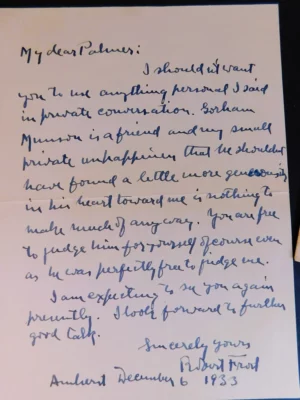 My dear Palmer:
I shouldn't want
you to use anything personal I said
in private conversation. Gorham
Munson is a friend and my small
private unhappiness that he shouldnt
have found a little more generosity
in his heart toward me is nothing to
make much of any way. You are free
to judge him for yourself of course even
as he was perfectly free to judge me.
I am expecting to see you again
presently. I look forward to further
good talk.
Sincerely yours
Robert Frost
Amherst December 6 1933